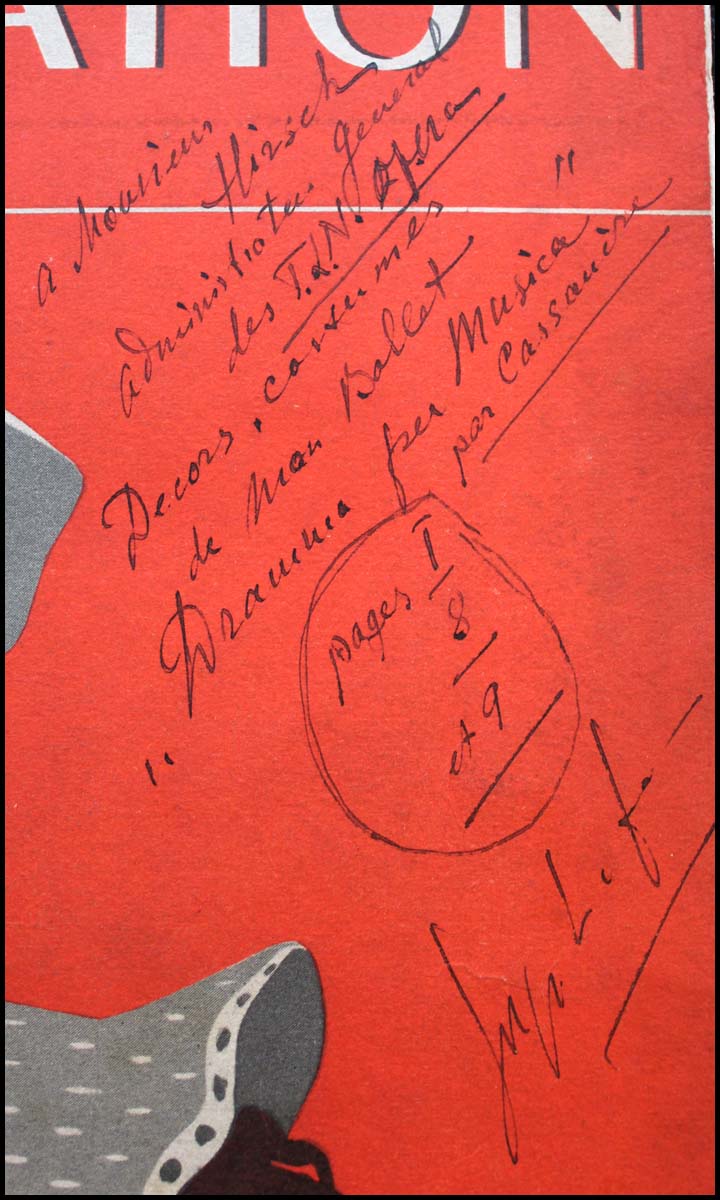 ATION
A Monsieur
Hirsch
administrateur general
des T.L.N. Opera
Decors, costumes
de Mon Ballet
"Dramma per Musica"
par Cassandre
pages 1
8
et 9
Serge Lifar